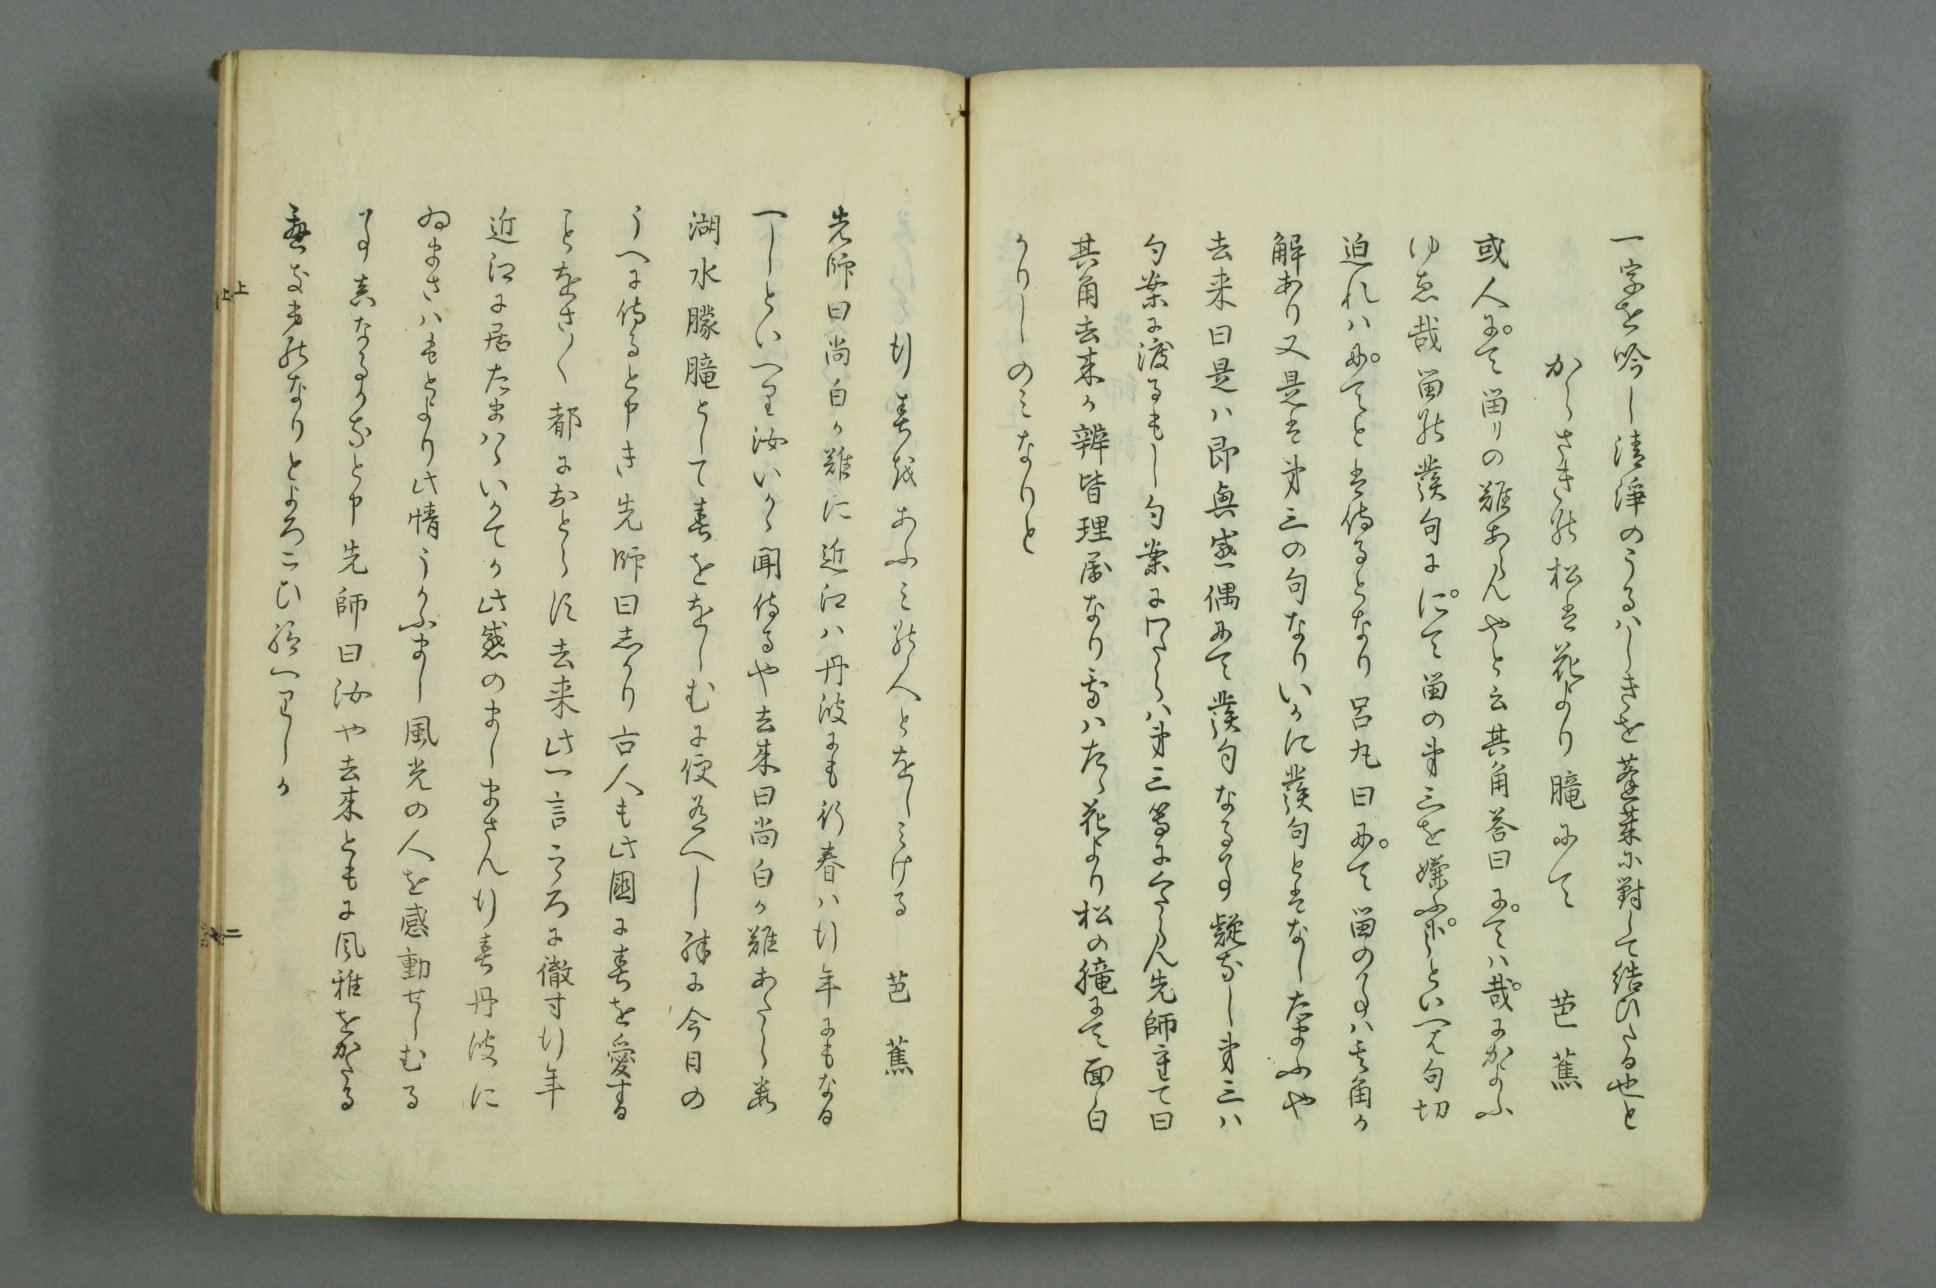 一字を吟し清浄のうるハしきを蓬莱に對して結ひたる也と
からさきの松は花より朧にて　芭蕉
或人にて留りの難あらんやと云其角答曰にてハ哉にかよふ
ゆゑ哉留の發句ににて留の第三を嫌ふにらといへは句切
迫れハにてとは侍るとなり呂丸曰にて留の事ハ其角か
解あり又是は第三の句なりいかに發句とはなしたまふや
去来曰是ハ即興感偶にて發句なる事疑なし第三ハ
句案に渡るもし句案にわたらハ第三等にくたらん先師重て曰
其角去来か辨皆理屈なり我ハたゝ花より松の朧にて面白
かりしのミなりと
行春をあふミの人とをしミける　芭蕉
先師曰尚白か難に近江ハ丹波にも行春ハ行年にもなる
へしといへり汝いかゝ聞侍るや去来曰尚白か難あたらす
湖水朦朧として春ををしむに便有へし殊に今日の
うへに侍ると申き先師曰しかり古人も此國に春を愛する
ことをさ〱都におとらす去来此一言こゝろに徹す行年
近江に居たまハゝいかてか此感のましまさん行春丹波に
ゐまさハもとより此情うかふまし風光の人を感動せしむる
事真なるかなと申先師曰汝や去来ともに風雅をかたる
へきものなりとよろこひ給へりしか
上
上
二